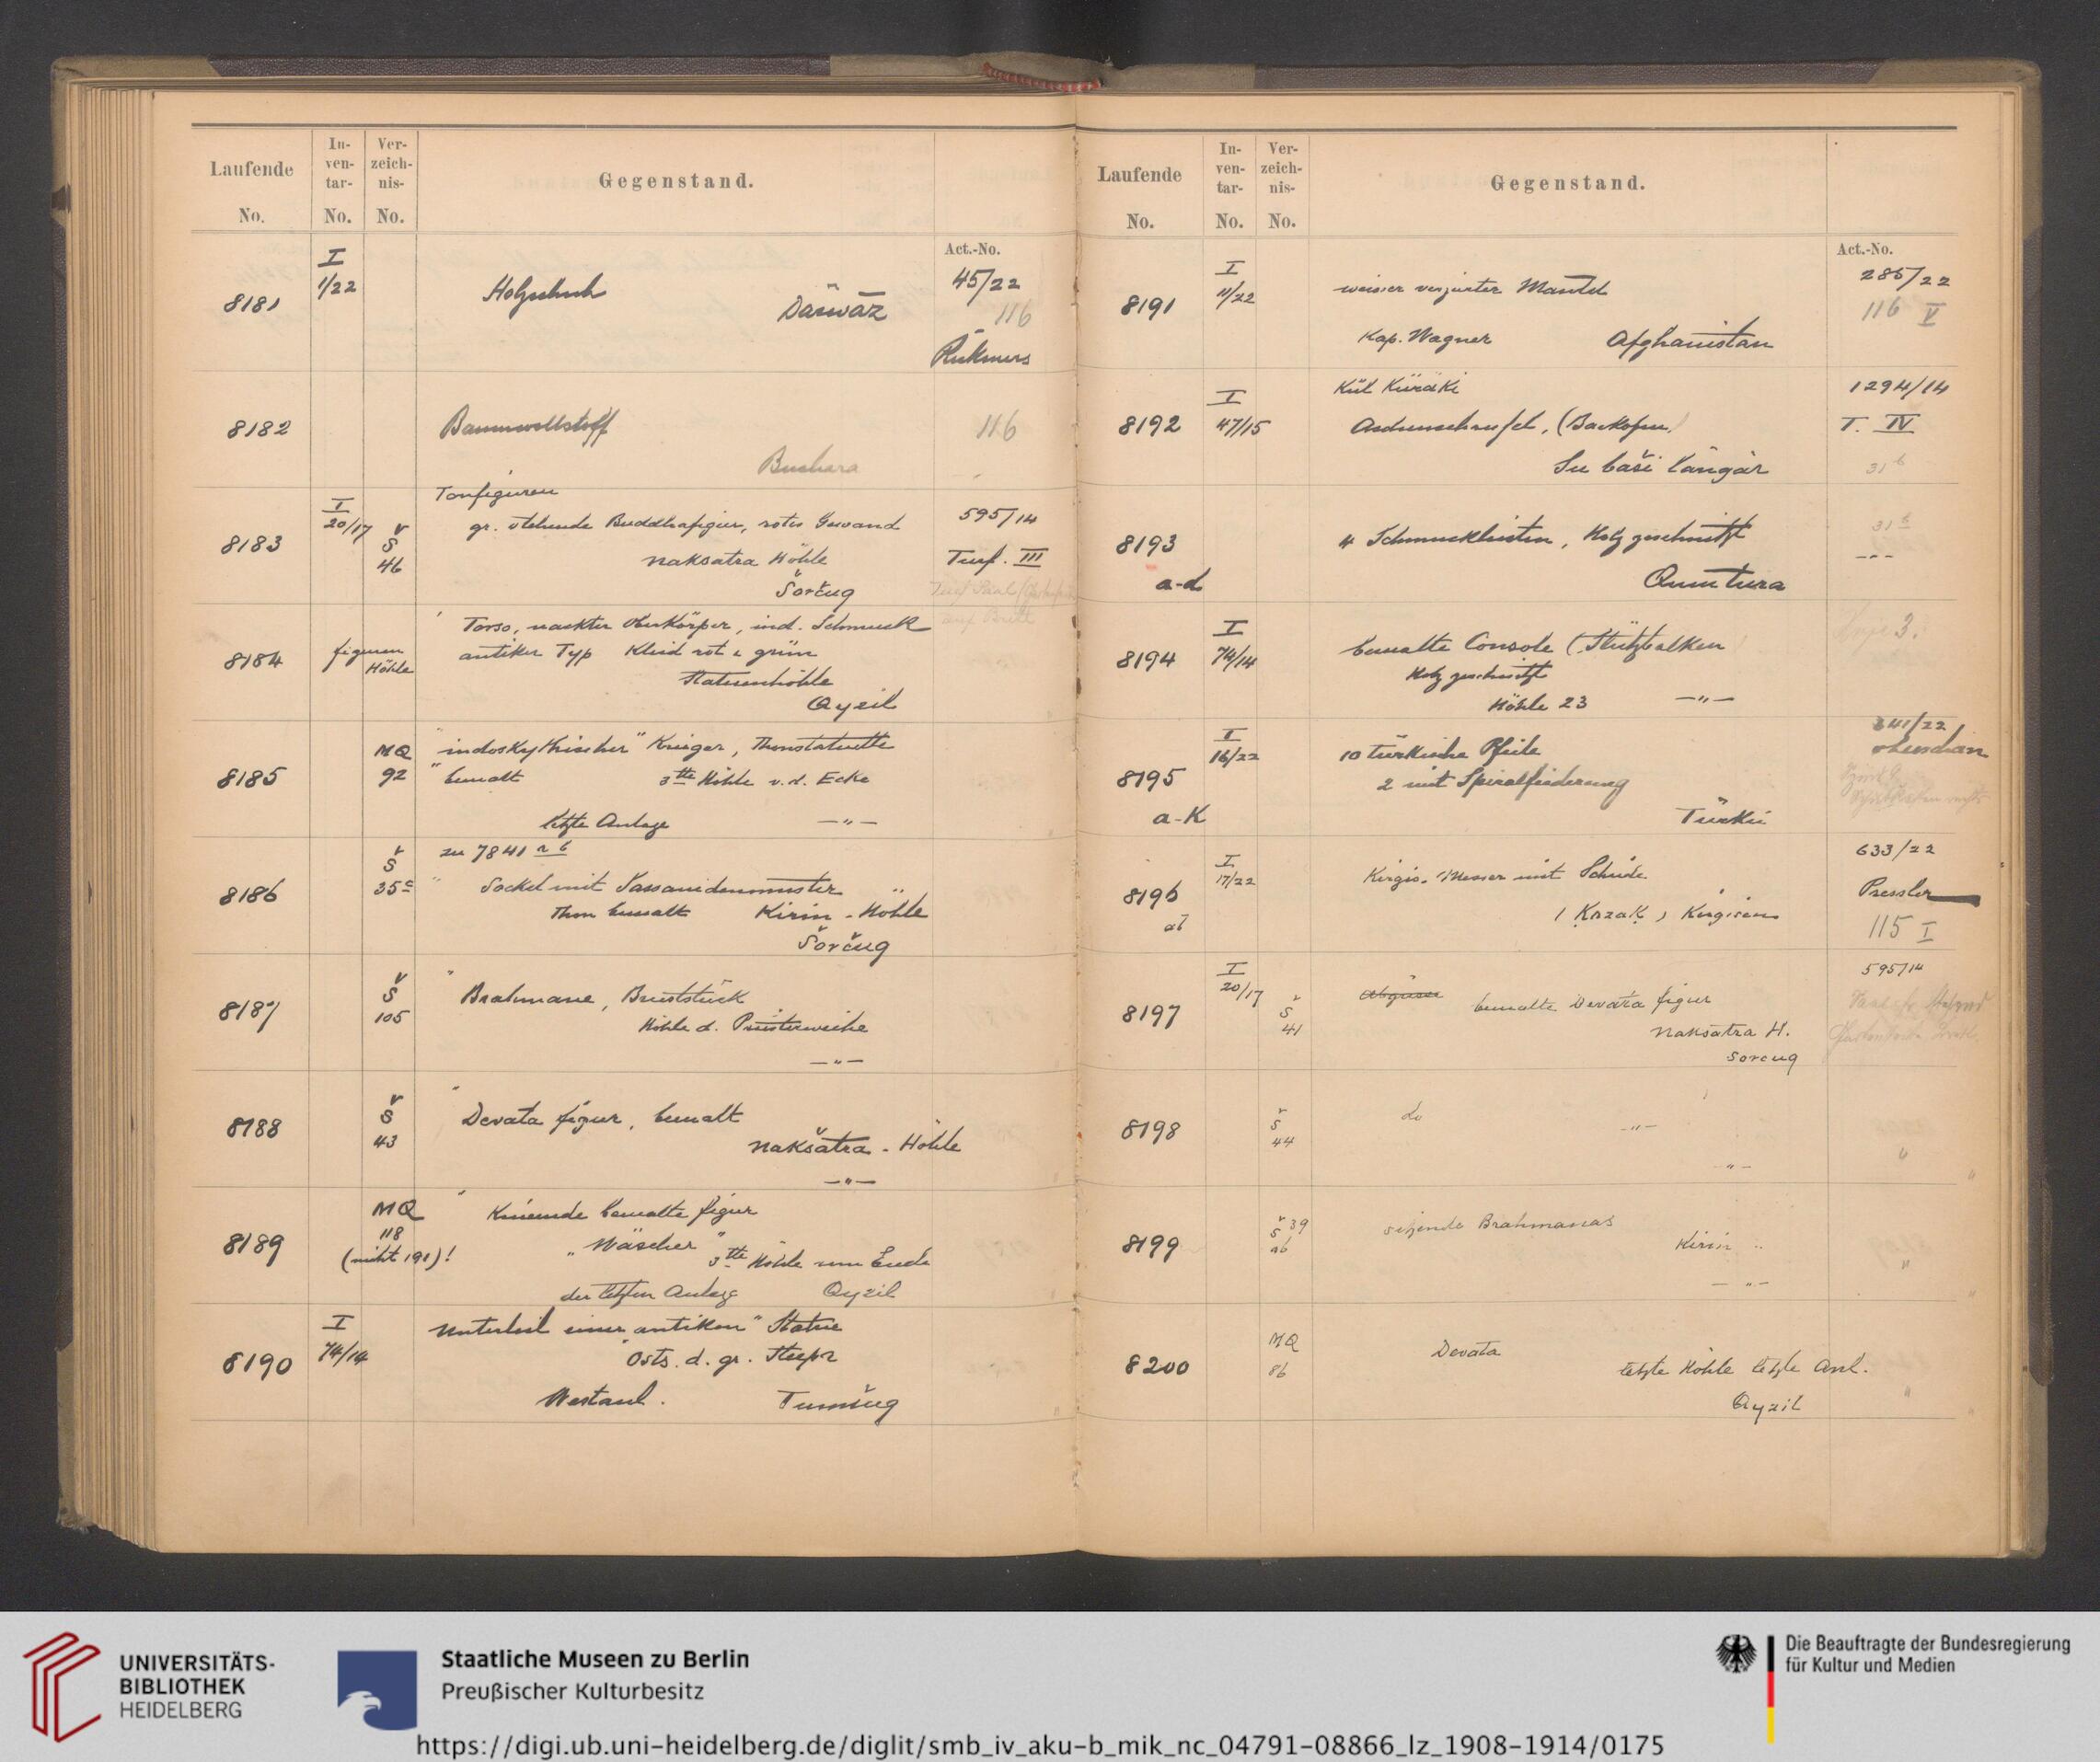 Laufende No.
In-ven-tar- No.
Ver-zeich-nis- No.
Gegenstand.
Act.-No.
8181
I 1/22
Holzschuh
Därwāz
45/22
116
Rickmers
8182
Baumwollstoff
Buchara
116
8183
I 20/17
Š 46
Tonfiguren
gr. stehende Buddhafigur, rotes Gewand
Naksatra Höhle
Šorčug
595/14
Turf. III
8184
figuren Höhle
Torso, nackter Oberkörper, ind. Schmuck
antiker Typ Kleid rot u grün
Statuenhöhle
Qyzil
8185
MQ 92
" indoskythischer" Krieger, Thonstatuette
" bemalt 3tte Höhle v. d. Ecke
letzte Anlage — " —
8186
Š 35c
zu 7841 a b
" Sockel mit Sassanidenmuster
Thon bemalt Kirin-Höhle
Šorčug
8187
Š 105
" Brahmane, Bruststück
Höhle d. Priesterweihe
— " —
8188
Š 43
" Devata figur, bemalt
Nakšatra-Höhle
— " —
8189
MQ 118
(nicht 191)!
" Knieende bemalte figur
"Wäscher" 3tte Höhle vom Ende
der letzten Anlage Qyzil
8190
I 74/14
Unterteil einer "antiken" Statue
Osts. d. gr. Stupa
Westanl. Tumšug
Laufende No.
In-ven-tar- No.
Ver-zeich-nis- No.
Gegenstand.
Act.-No.
8191
I 11/22
weisser verzierter Mantel
Kap. Wagner Afghanistan
285/22
116 V
8192
I 47/15
Aschenschaufel, (Backofen)
Su baši Längär
1294/14
T. IV
31 b
8193
a-d
4 Schmuckleisten, Holz geschnitzt
Qumtura
31 b
8194
I 74/14
bemalte Console (Stützbalken)
Holz geschnitzt
Höhle 23 — " —
3.
8195
a-k
I 16/22
10 türkische Pfeile
2 mit Spiralfiederung
Türkei
341/22
8196
ab
I 17/22
Kirgis. Messer mit Scheide
(Kazak) Kirgisen
633/22
Pressler
115 I
8197
I 20/17
Š 41
Abgüsse bemalte Devata figur
Naksatra H.
Sorcug
595/14
8198
Š 44
do — " —
— " —
"
8199
Š 39 ab
sitzende Brahmanas
Kirin "
— " —
"
8200
MQ 86
Devata
letzte Höhle letzte Anl.
Qyzil
"
UNIVERSITÄTS-
BIBLIOTHEK
HEIDELBERG
Staatliche Museen zu Berlin
Preußischer Kulturbesitz
Die Beauftragte der Bundesregierung
für Kultur und Medien
https://digi.ub.uni-heidelberg.de/diglit/smb_iv_aku-b_mik_nc_04791-08866_lz_1908-1914/0175